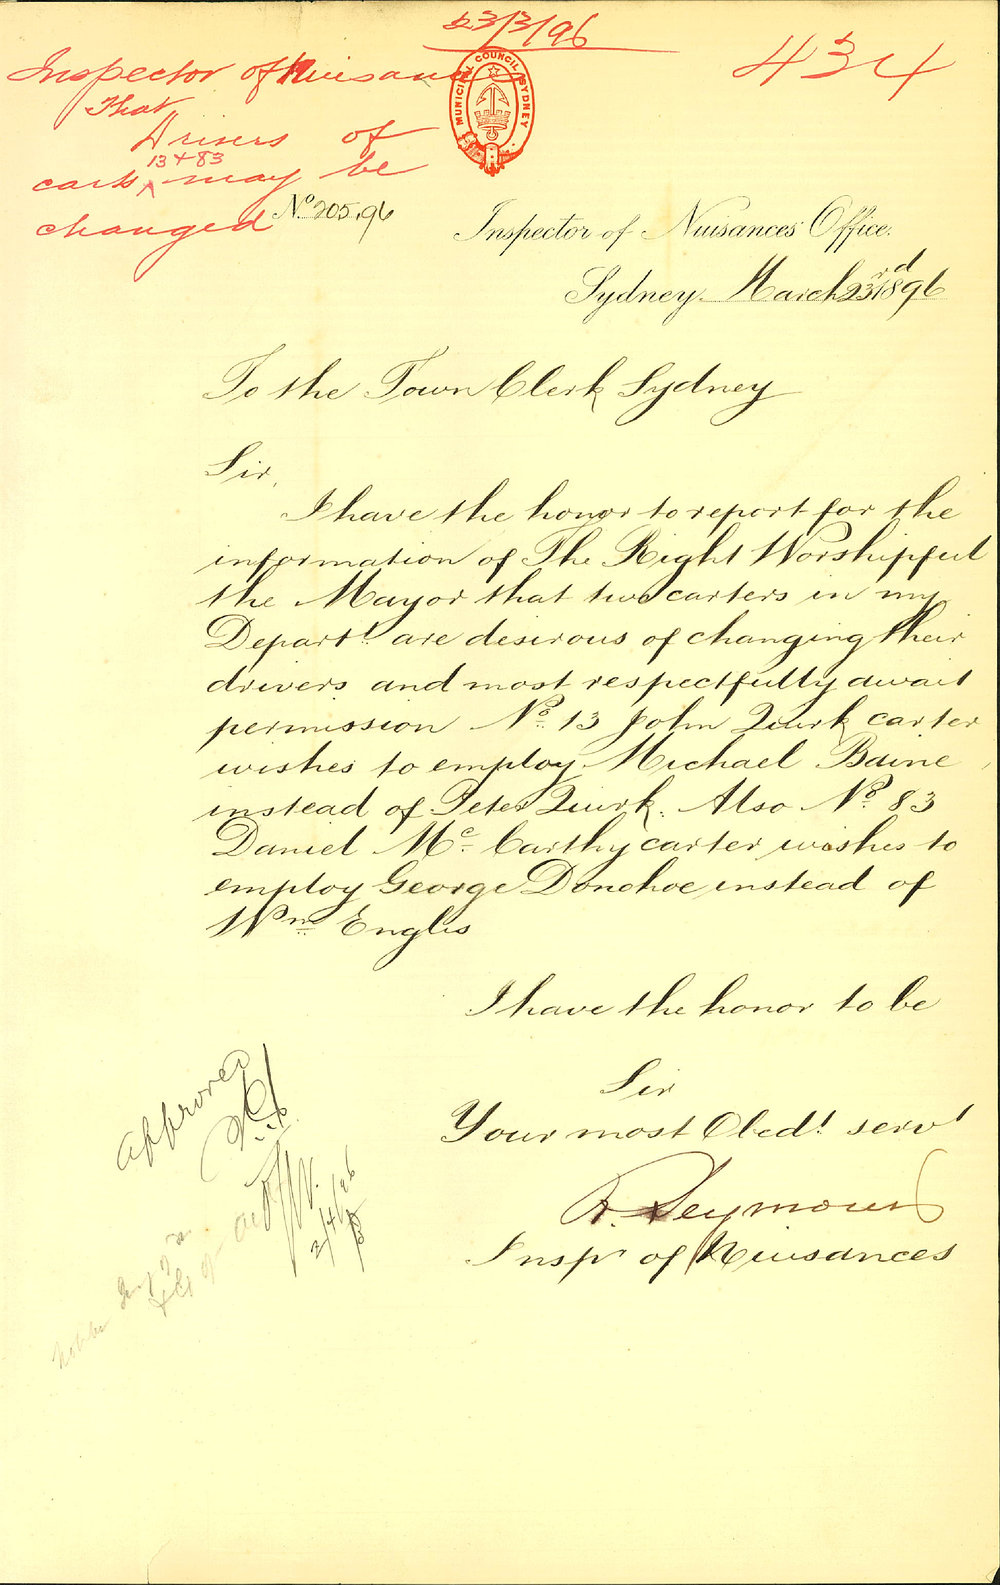 23/3/96
434
Inspector of Nuisances
That
Drivers of
13 & 83
carts ^ may be
changed
MUNICIPAL COUNCIL SYDNEY
No. 205.96
Inspector of Nuisances Office.
Sydney. March 23rd 1896
To the Town Clerk Sydney
Sir,
I have the honor to report for the
information of The Right Worshipful
the Mayor that two carters in my
Depart.t are desirous of changing their
drivers and most respectfully await
permission No. 13 John Quirk carter
wishes to employ Michael Baine
instead of Peter Quirk. Also No. 83
Daniel Mc. Carthy carter wishes to
employ George Donohoe instead of
Wm. Englis
I have the honor to be
Sir
Your most Obed.t serv.t
R. Seymour
Insp.r of Nuisances
Approved
2/4/96